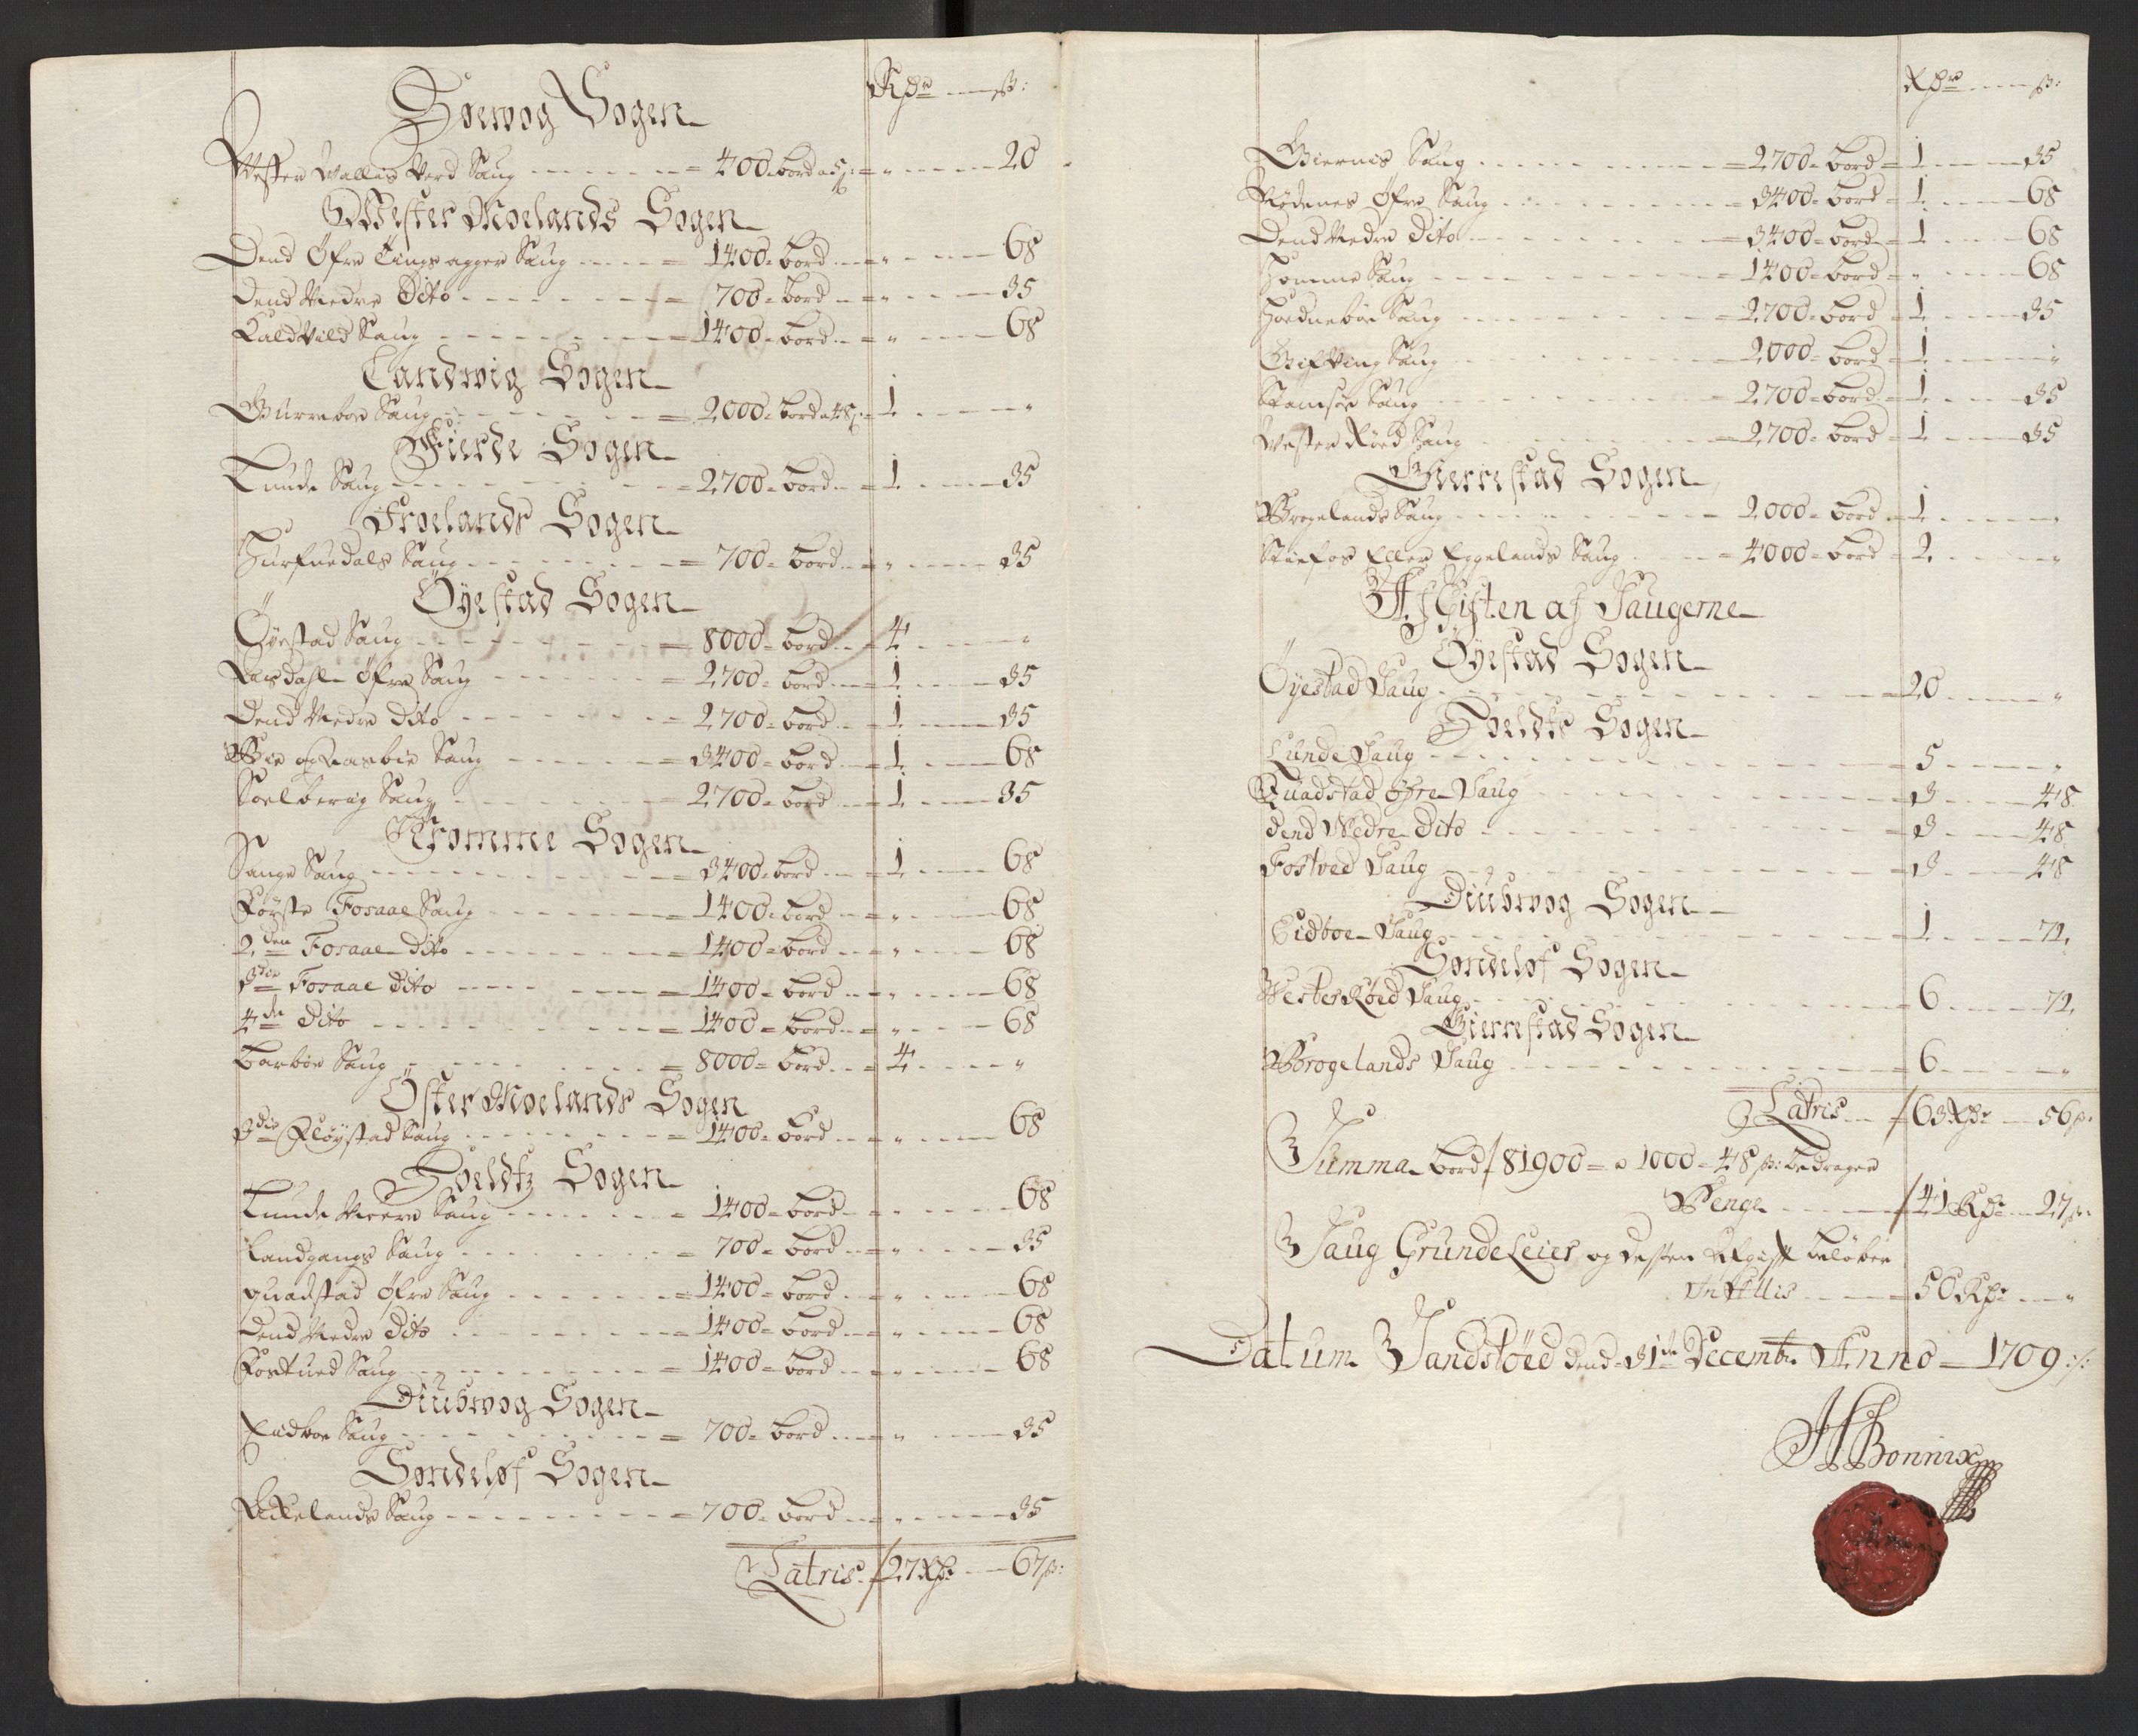 Rdr ß:
Høewog Sogen
Wester Wallis Nerd Saug = 400 = bord a 5 ß = " 20
Wester Moelands Sogen
Dend Øfre Tingsagger Saug = 1400 = bord = " 68
Dend Nedre Dito = 700 = bord = " 35
Kaldvild Saug = 1400 = bord = " 68
Landwig Sogen
Gurreboe Saug = 2000 = bord a 48 ß = 1 "
Fierde Sogen
Lunde Saug = 2700 = bord = 1 35
Froelands Sogen
Hurfuedals Saug = 700 = bord = " 35
Øyestad Sogen
Øyestad Saug = 8000 = bord = 4 "
Rasdahl Øfre Saug = 2700 = bord = 1 35
Dend Nedre Dito = 2700 = bord = 1 35
Bie og Rasbie Saug = 3400 = bord = 1 68
Soelberig Saug = 2700 = bord = 1 35
Tromme Sogen
Sange Saug = 3400 = bord = 1 68
Første Fosaae Saug = 1400 = bord = " 68
2den Fosaae Dito = 1400 = bord = " 68
3die Fosaae Dito = 1400 = bord = " 68
4de Dito = 1400 = bord = " 68
Barboe Saug = 8000 = bord = 4 "
Øster Moelands Sogen
3die Fløystad Saug = 1400 = bord = " 68
Hoeldtz Sogen
Lunde Neere Saug = 1400 = bord = " 68
Landgangs Saug = 700 = bord = " 35
Quadstad Øfre Saug = 1400 = bord = " 68
Dend Nedre Dito = 1400 = bord = " 68
Fostued Saug = 1400 = bord = " 68
Diubwog Sogen
Eidboe Saug = 700 = bord = " 35
Søndeløf Sogen
Eikelands Saug = 700 = bord = " 35
Latris 27 Rdr 67 ß:
Rdr ß:
Giernis Saug = 2700 = bord = 1 35
Rødenes Øfre Saug = 3400 = bord = 1 68
Dend Nedre Dito = 3400 = bord = 1 68
Homme Saug = 1400 = bord = " 68
Hoedneboe Saug = 2700 = bord = 1 35
Gifving Saug 2000 = bord = 1 "
Stamsøe Saug = 2700 = bord = 1 35
Wester Røed Saug = 2700 = bord = 1 35
Gierrestad Sogen
Brogelands Saug = 2000 = bord = 1 "
Stiefos Eller Eggelands Saug = 4000 = bord = 2 "
Afgiften af Saugerne
Øyestad Sogen
Øyestad Saug = 20 "
Hoeldts Sogen
Lunde Saug = 5 "
Quadstad øfre Saug = 3 48
dend Nedre Dito = 3 48
Fostved Saug = 3 48
Diubwog Sogen
Eidboe Saug = 1 72
Søndeløf Sogen
Wester Røed Saug = 6 72
Gierrestad Sogen
Brogelands Saug = 6 "
Latris 63 Rdr 56 ß:
Summa bord 81900 = a 1000 = 48 ß: bedrager
Penge 41 Rdr 27 ß:
Saug Grunde Leier og desten Afgift beløber
In Allis = 50 Rdr "
Datum Sandstøed dend 31de Decembr Anno 1709 :/:
Bonnix